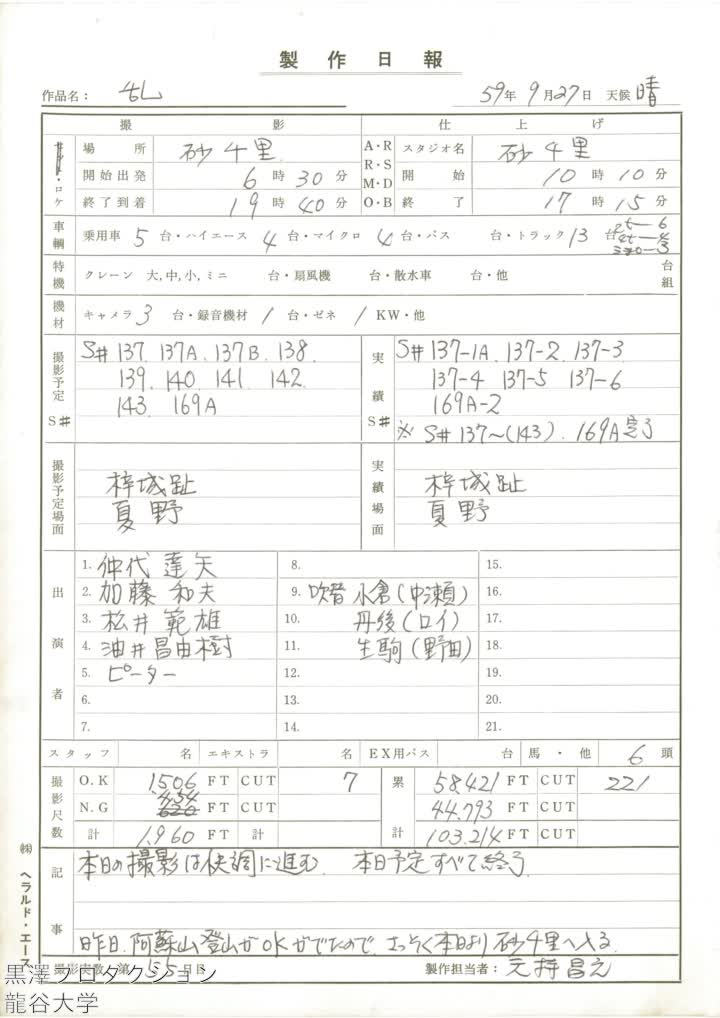 製作日報
作品名： 乱 59年 9月27日 天候 晴
撮影 仕上げ
ロケ 場所 砂千里 A・R R・S M・D O・B スタジオ名 砂千里
開始出発 6時30分 開始 10時10分
終了到着 19時40分 終了 17時15分
車輌 乗用車 5 台・ハイエース 4 台・マイクロ 4 台・バス 台・トラック 13 台 2t-6 4t-4
特機 クレーン 大,中,小,ミニ 台・扇風機 台・散水車 台・他 台組
機材 キャメラ 3 台・録音機材 1 台・ゼネ 1 KW・他
撮影予定 S# S# 137. 137A. 137B. 138.
139. 140. 141. 142.
143. 169A
実績 S# S# 137-1A. 137-2. 137-3
137-4 137-5 137-6
169A-2
※ S# 137～(143). 169A完了
撮影予定場面 梓城趾
夏野
実績場面 梓城趾
夏野
出演者
1. 仲代達矢 8. 15.
2. 加藤和夫 9. 吹替 小倉(中瀬) 16.
3. 松井範雄 10. 丹後(ロイ) 17.
4. 油井昌由樹 11. 生駒(野田) 18.
5. ピーター 12. 19.
6. 13. 20.
7. 14. 21.
スタッフ 名 エキストラ 名 EX用バス 台 馬・他 6 頭
撮影尺数 O.K 1,506 FT CUT 7 累計 58.421 FT CUT 221
N.G 454 FT CUT 44.793 FT CUT
計 1,960 FT 計 103.214 FT CUT
記事 本日の撮影は快調に進む. 本日予定すべて終了.
昨日.阿蘇山登山がOKがでたので.さっそく本日より砂千里へ入る.
撮影実数 第 55 日目 製作担当者： 元持昌之
㈱ ヘラルド・エース
黒澤プロダクション
龍谷大学